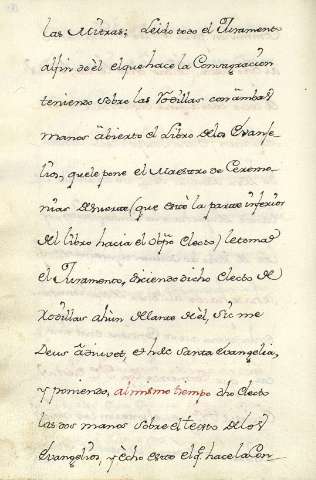 las Mitras; Leido todo el Juramento
al fin de èl el que hace la Consagracion
teniendo sobre las Rodillas con ambas
manos abierto el Libro de los Evanje-
lios, que le pone el Maestro de Ceremo-
nias de suerte (que esté la parte inferior
del libro hacia el Obpõ Electo) le toma
el Juramento, diciendo dicho Electo de
Rodillas ahun delante de èl, Sic me
Deus adiuvet, et hæc Santa Evangelia,
y poniendo, al mismo tiempo dho Electo
las dos manos sobre el texto de los
Evangelios, y echo esto el q̃ hace la Con-